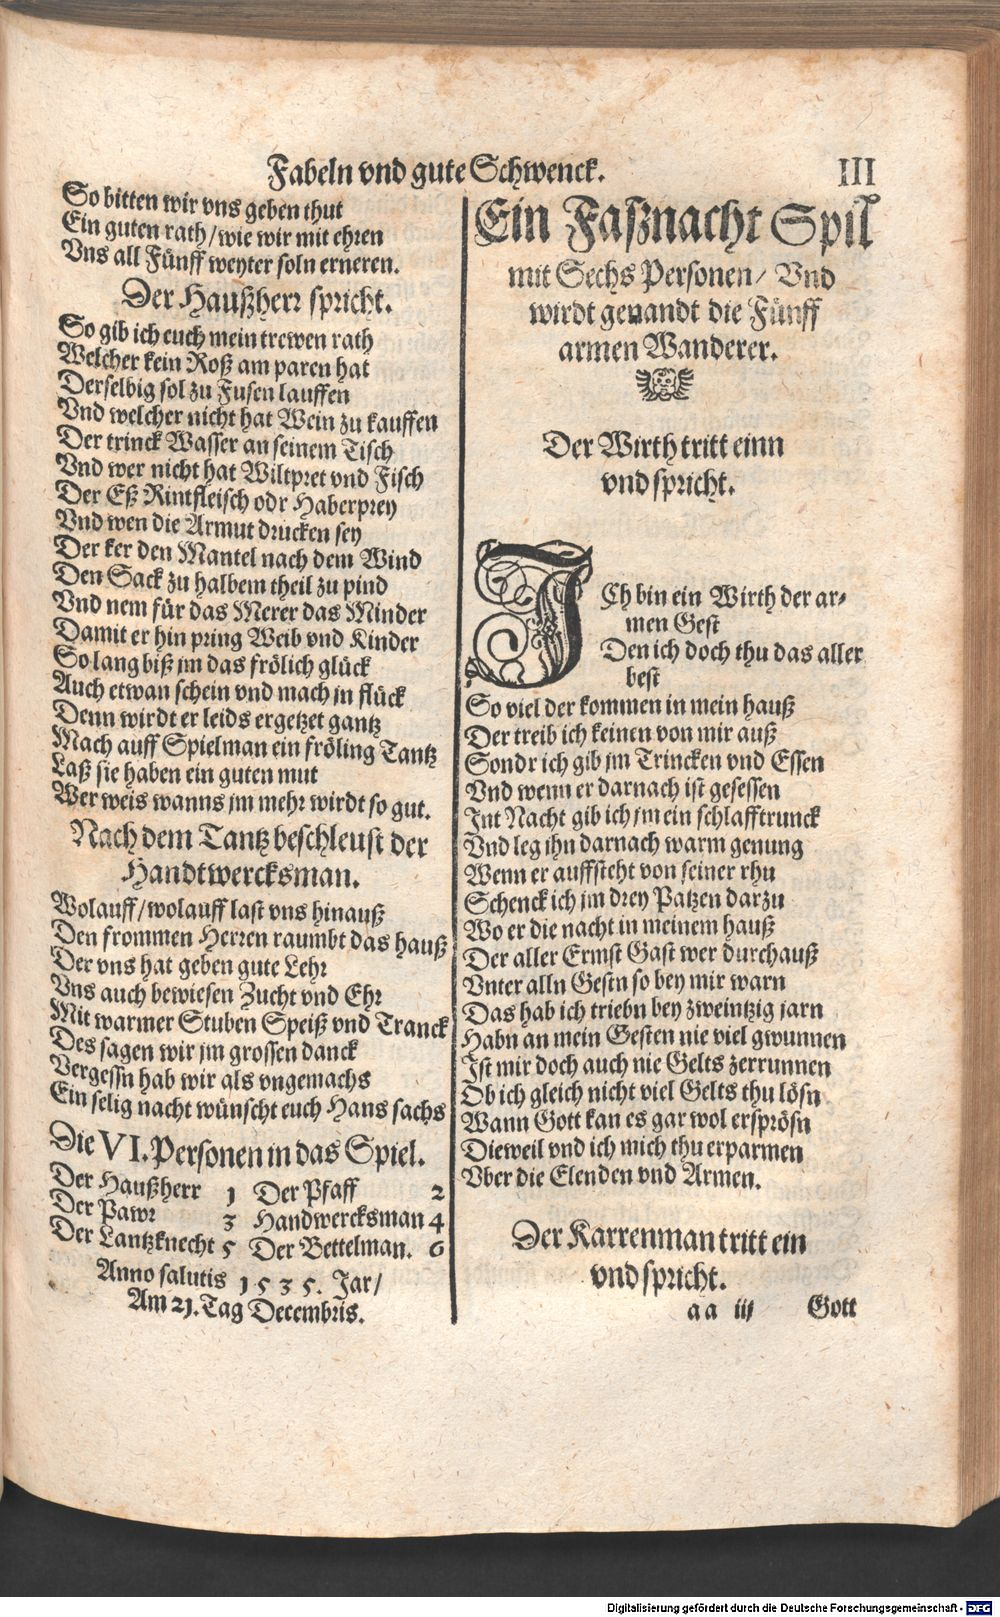 Fabeln vnd gute Schwenck. III
So bitten wir vns geben thut
Ein guten rath / wie wir mit ehren
Vns all Fünff weyter soln erneren.
Der Haußherr spricht.
So gib ich euch mein trewen rath
Welcher kein Roß am paren hat
Derselbig sol zu Fusen lauffen
Vnd welcher nicht hat Wein zu kauffen
Der trinck Wasser an seinem Tisch
Vnd wer nicht hat Wiltpret vnd Fisch
Der Eß Rintfleisch odr Haberprey
Vnd wen die Armut drucken sey
Der ker den Mantel nach dem Wind
Den Sack zu halbem theil zu pind
Vnd nem für das Merer das Minder
Damit er hin pring Weib vnd Kinder
So lang biß jm das frölich glück
Auch etwan schein vnd mach jn flück
Denn wirdt er leids ergetzet gantz
Mach auff Spielman ein fröling Tantz
Laß sie haben ein guten mut
Wer weis wanns jm mehr wirdt so gut.
Nach dem Tantz beschleust der
Handtwercksman.
Wolauff / wolauff last vns hinauß
Den frommen Herren raumbt das hauß
Der vns hat geben gute Lehr
Vns auch bewiesen Zucht vnd Ehr
Mit warmer Stuben Speiß vnd Tranck
Des sagen wir jm grossen danck
Vergessn hab wir als vngemachs
Ein selig nacht wünscht euch Hans sachs
Die VI. Personen in das Spiel.
Der Haußherr 1 Der Pfaff 2
Der Pawr 3 Handwercksman 4
Der Lantzknecht 5 Der Bettelman. 6
Anno salutis 1535. Jar /
Am 21. Tag Decembris.
Ein Faßnacht Spil
mit Sechs Personen / Vnd
wirdt genandt die Fünff
armen Wanderer.
Der Wirth tritt einn
vnd spricht.
ICh bin ein Wirth der ar-
men Gest
Den ich doch thu das aller
best
So viel der kommen in mein hauß
Der treib ich keinen von mir auß
Sondr ich gib jm Trincken vnd Essen
Vnd wenn er darnach ist gesessen
Int Nacht gib ich jm ein schlafftrunck
Vnd leg ihn darnach warm genung
Wenn er auffsteht von seiner rhu
Schenck ich jm drey Patzen darzu
Wo er die nacht in meinem hauß
Der aller Ermst Gast wer durchauß
Vnter alln Gestn so bey mir warn
Das hab ich triebn bey zweintzig jarn
Habn an mein Gesten nie viel gwunnen
Ist mir doch auch nie Gelts zerrunnen
Ob ich gleich nicht viel Gelts thu lösn
Wann Gott kan es gar wol ersprösn
Dieweil vnd ich mich thu erparmen
Vber die Elenden vnd Armen.
Der Karrenman tritt ein
vnd spricht.
aa iij Gott
Digitalisierung gefördert durch die Deutsche Forschungsgemeinschaft - DFG